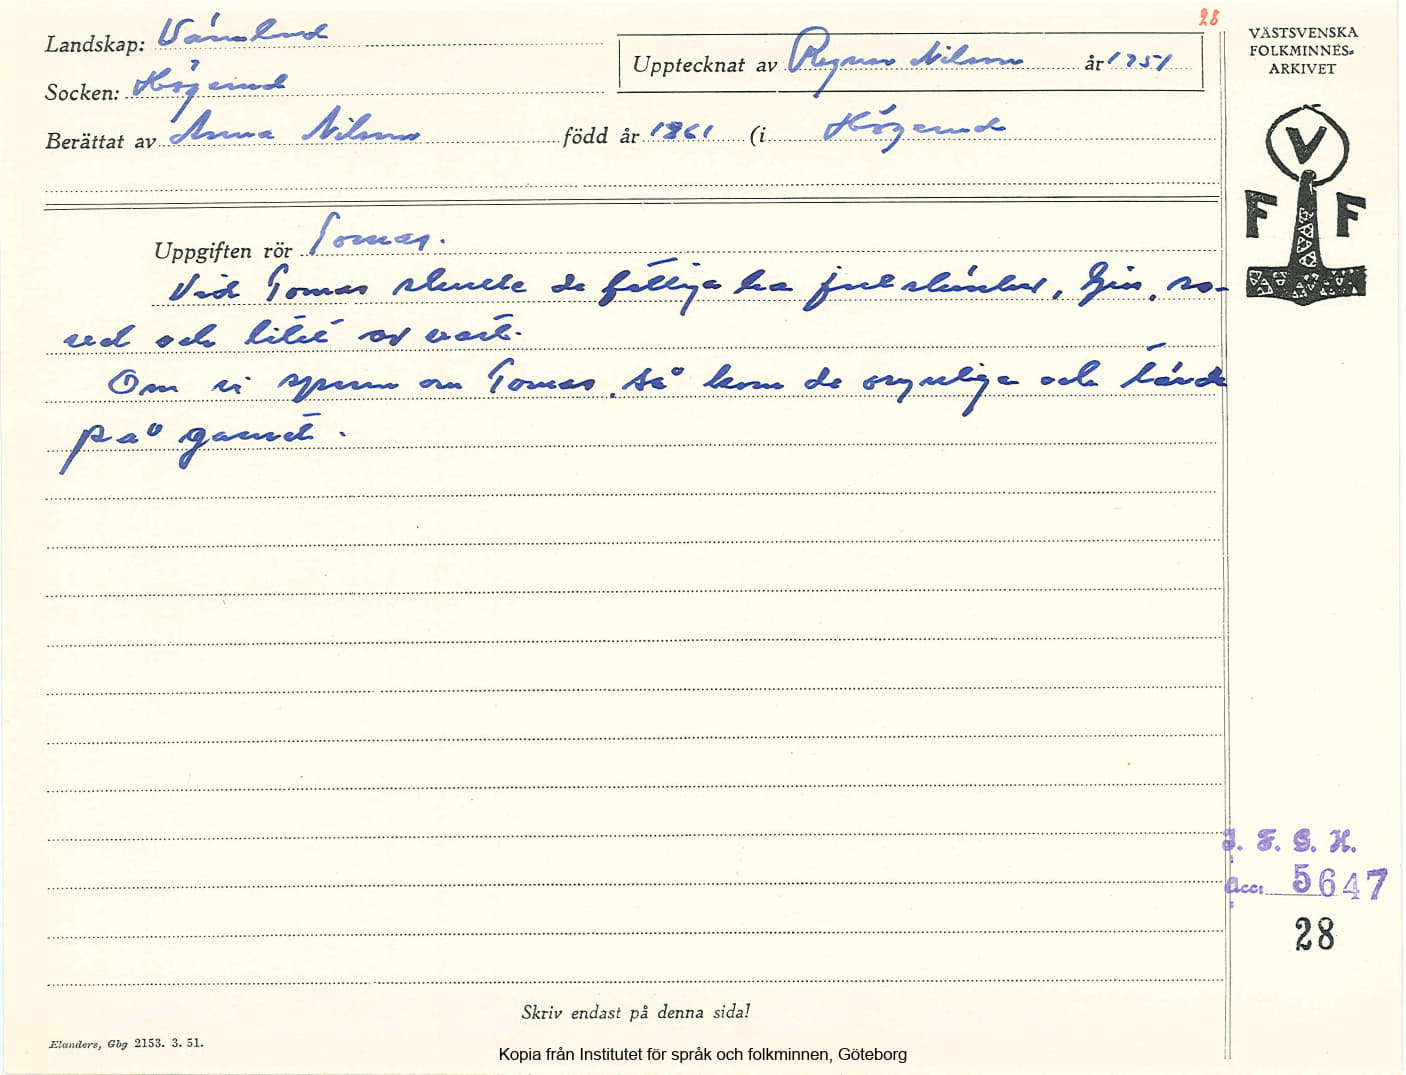 28
Landskap: Värmland
Socken: Högerud
Upptecknat av Ragnar Nilsson år 1951
Berättat av Anna Nilsson född år 1861 (i Högerud
VÄSTSVENSKA
FOLKMINNES-
ARKIVET
V
F F
Uppgiften rör Tomas.
Vid Tomas skulle de fattiga ha julslanter, ljus, so-
vel och litet av vart.
Om vi spann om Tomas, så kom de osynliga och
på garnet.
J. F. G. H.
Acc: 5647
28
Skriv endast på denna sida!
Elanders, Gbg 2153. 3. 51.
Kopia från Institutet för språk och folkminnen, Göteborg